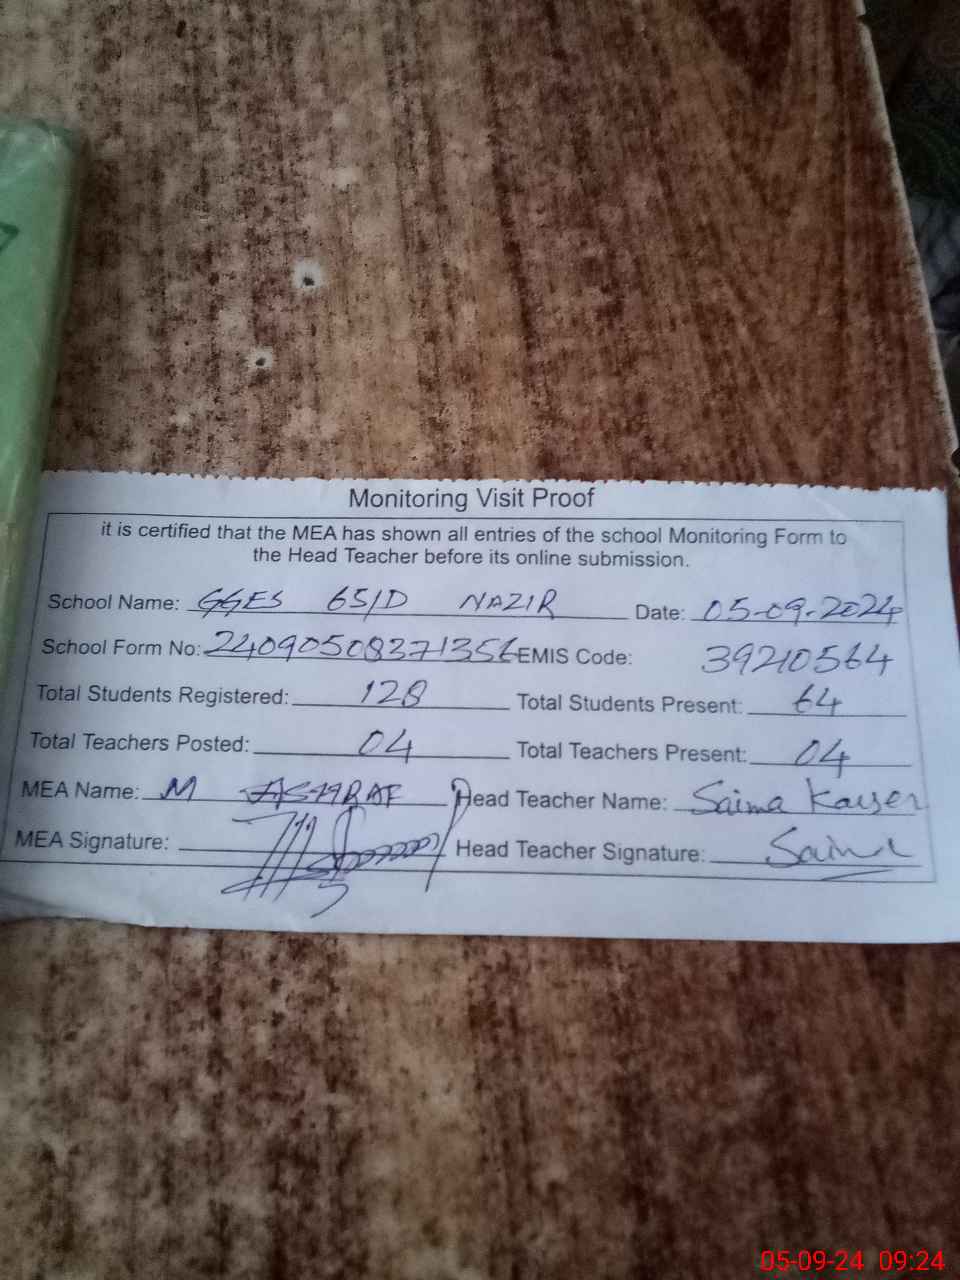 Monitoring Visit Proof
it is certified that the MEA has shown all entries of the school Monitoring Form to
the Head Teacher before its online submission.
School Name: GGES 65/D NAZIR Date: 05-09-2024
School Form No: 24090508371356 EMIS Code: 39210564
Total Students Registered: 128 Total Students Present: 64
Total Teachers Posted: 04 Total Teachers Present: 04
MEA Name: M ASHRAF Head Teacher Name: Saima Kauser
MEA Signature: Head Teacher Signature: Saima
05-09-24 09:24